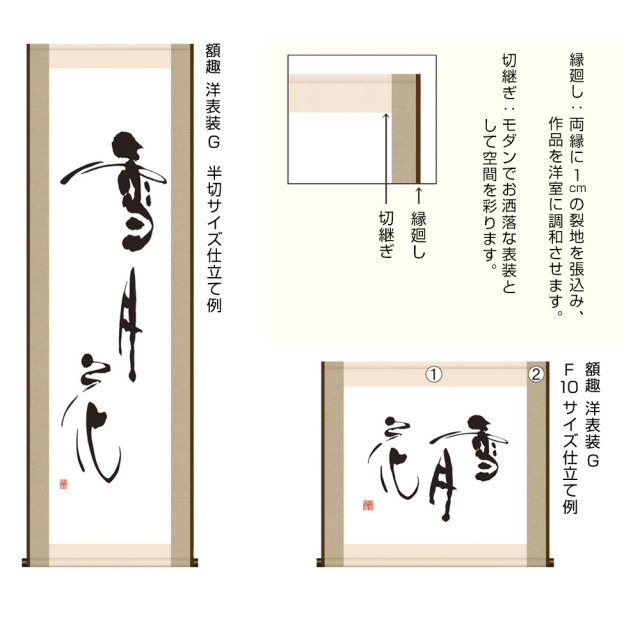 額趣 洋表装G 半切サイズ仕立て例
雪月花
縁廻し：両縁に1cmの裂地を張込み、
作品を洋室に調和させます。
切継ぎ：モダンでお洒落な表装と
して空間を彩ります。
縁廻し
切継ぎ
額趣 洋表装G
F10サイズ仕立て例
①
②
雪月
花